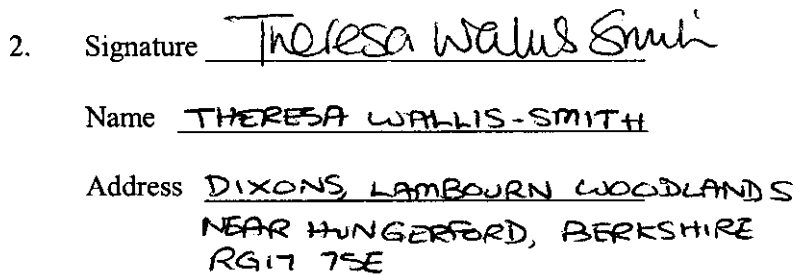 2. Signature Theresa Wallis Smith
Name THERESA WALLIS-SMITH
Address DIXONS, LAMBOURN WOODLANDS
NEAR HUNGERFORD, BERKSHIRE
RG17 7SE